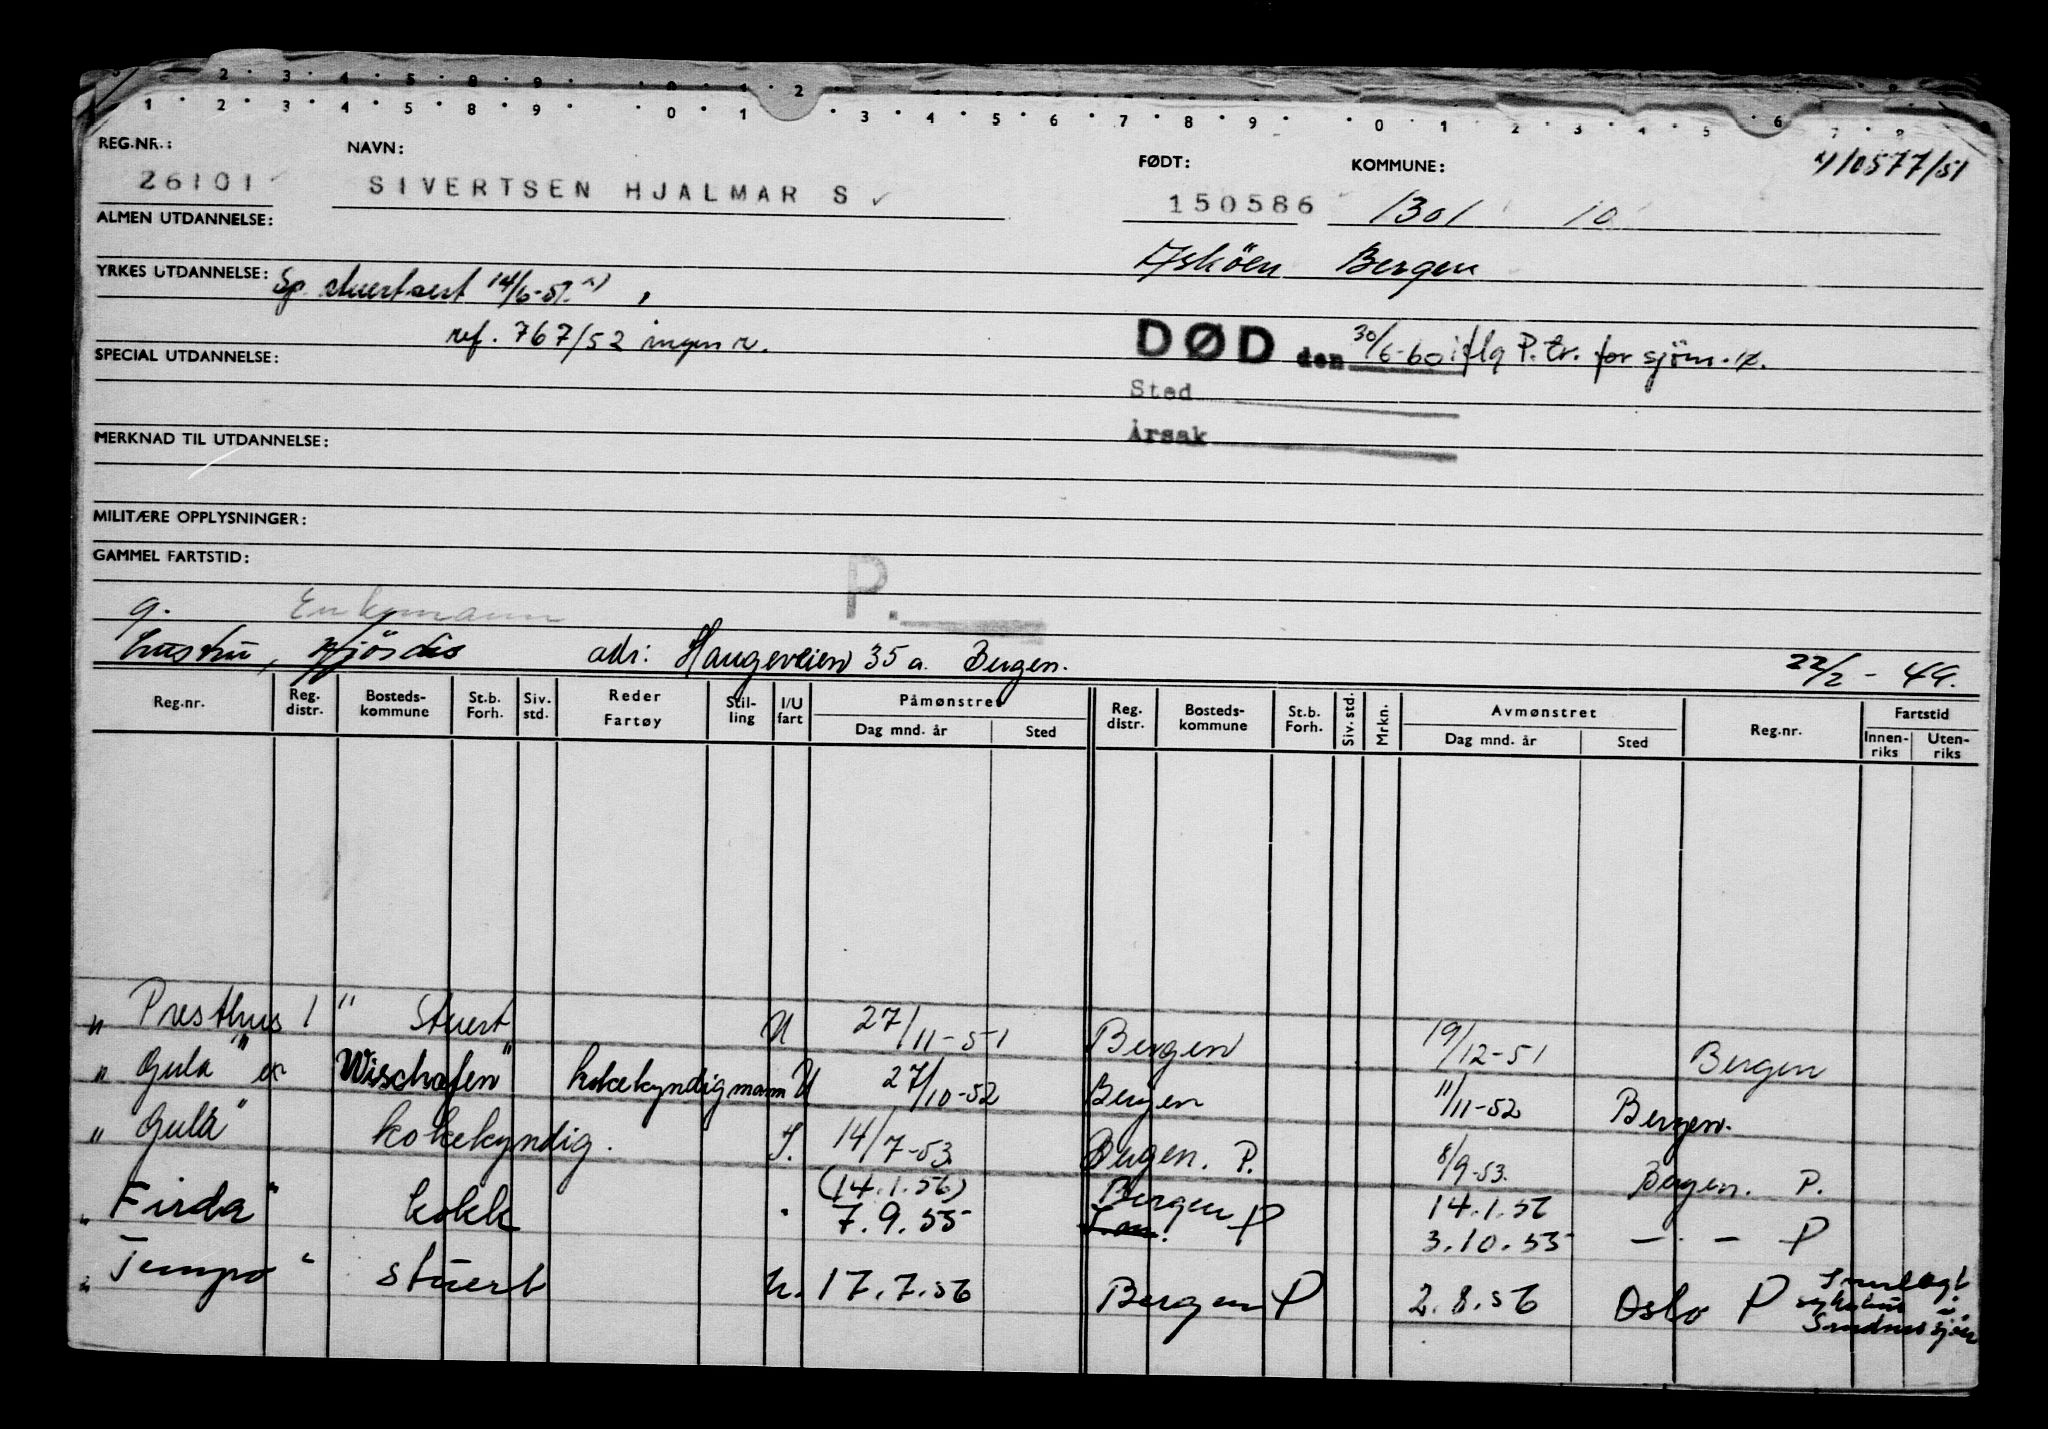 2 · 3 · 4 · 5 · 8 · 9 · 0 · 1 2
1 · 2 · 3 · 4 · 5 · 8 · 9 · 0 · 1 · 3 · 4 · 5 · 6 · 7 · 8 · 9 · 0 · 1 · 2 · 3 · 4 · 5 · 6 7
REG.NR.: NAVN: FØDT: KOMMUNE: 4/0577/51
26101 SIVERTSEN HJALMAR S 150586 1301 10
ALMEN UTDANNELSE:
Askøen Bergen
YRKES UTDANNELSE: Sp. stuertsert 14/6-51.
ref. 767/52 ingen r.
DØD den 30/6-60 iflg P.tr. for sjøm.
SPECIAL UTDANNELSE:
Sted
Årsak
MERKNAD TIL UTDANNELSE:
MILITÆRE OPPLYSNINGER:
GAMMEL FARTSTID:
P.
g. Enkemann
hustru, Hjørdis adr: Haugeveien 35 a. Bergen. 22/2-49.
Reg.nr. Reg. distr. Bosteds-kommune St.b. Forh. Siv. std. Reder Fartøy Stil-ling I/U fart Påmønstret Dag mnd. år Sted Reg. distr. Bosteds-kommune St.b. Forh. Siv. std. Mrkn. Avmønstret Dag mnd. år Sted Reg.nr. Fartstid Innen-riks Uten-riks
" Presthus 1 " Stuert U 27/11-51 Bergen 19/12-51 Bergen
" Gula " ex Wischafen" kokekyndig mann U 27/10-52 Bergen 11/11-52 Bergen.
" Gula" kokekyndig. I. 14/7-53. Bergen. P. 8/9-53. Bergen. P.
(14.1.56) Bergen 14.1.56
" Firda" kokk 7.9.55 P 3.10.55 — · — P
" Tempo " stuert U. 17.7.56 Bergen P 2.8.56 Oslo P Innlagt
sykehus i
Sandnessjøen